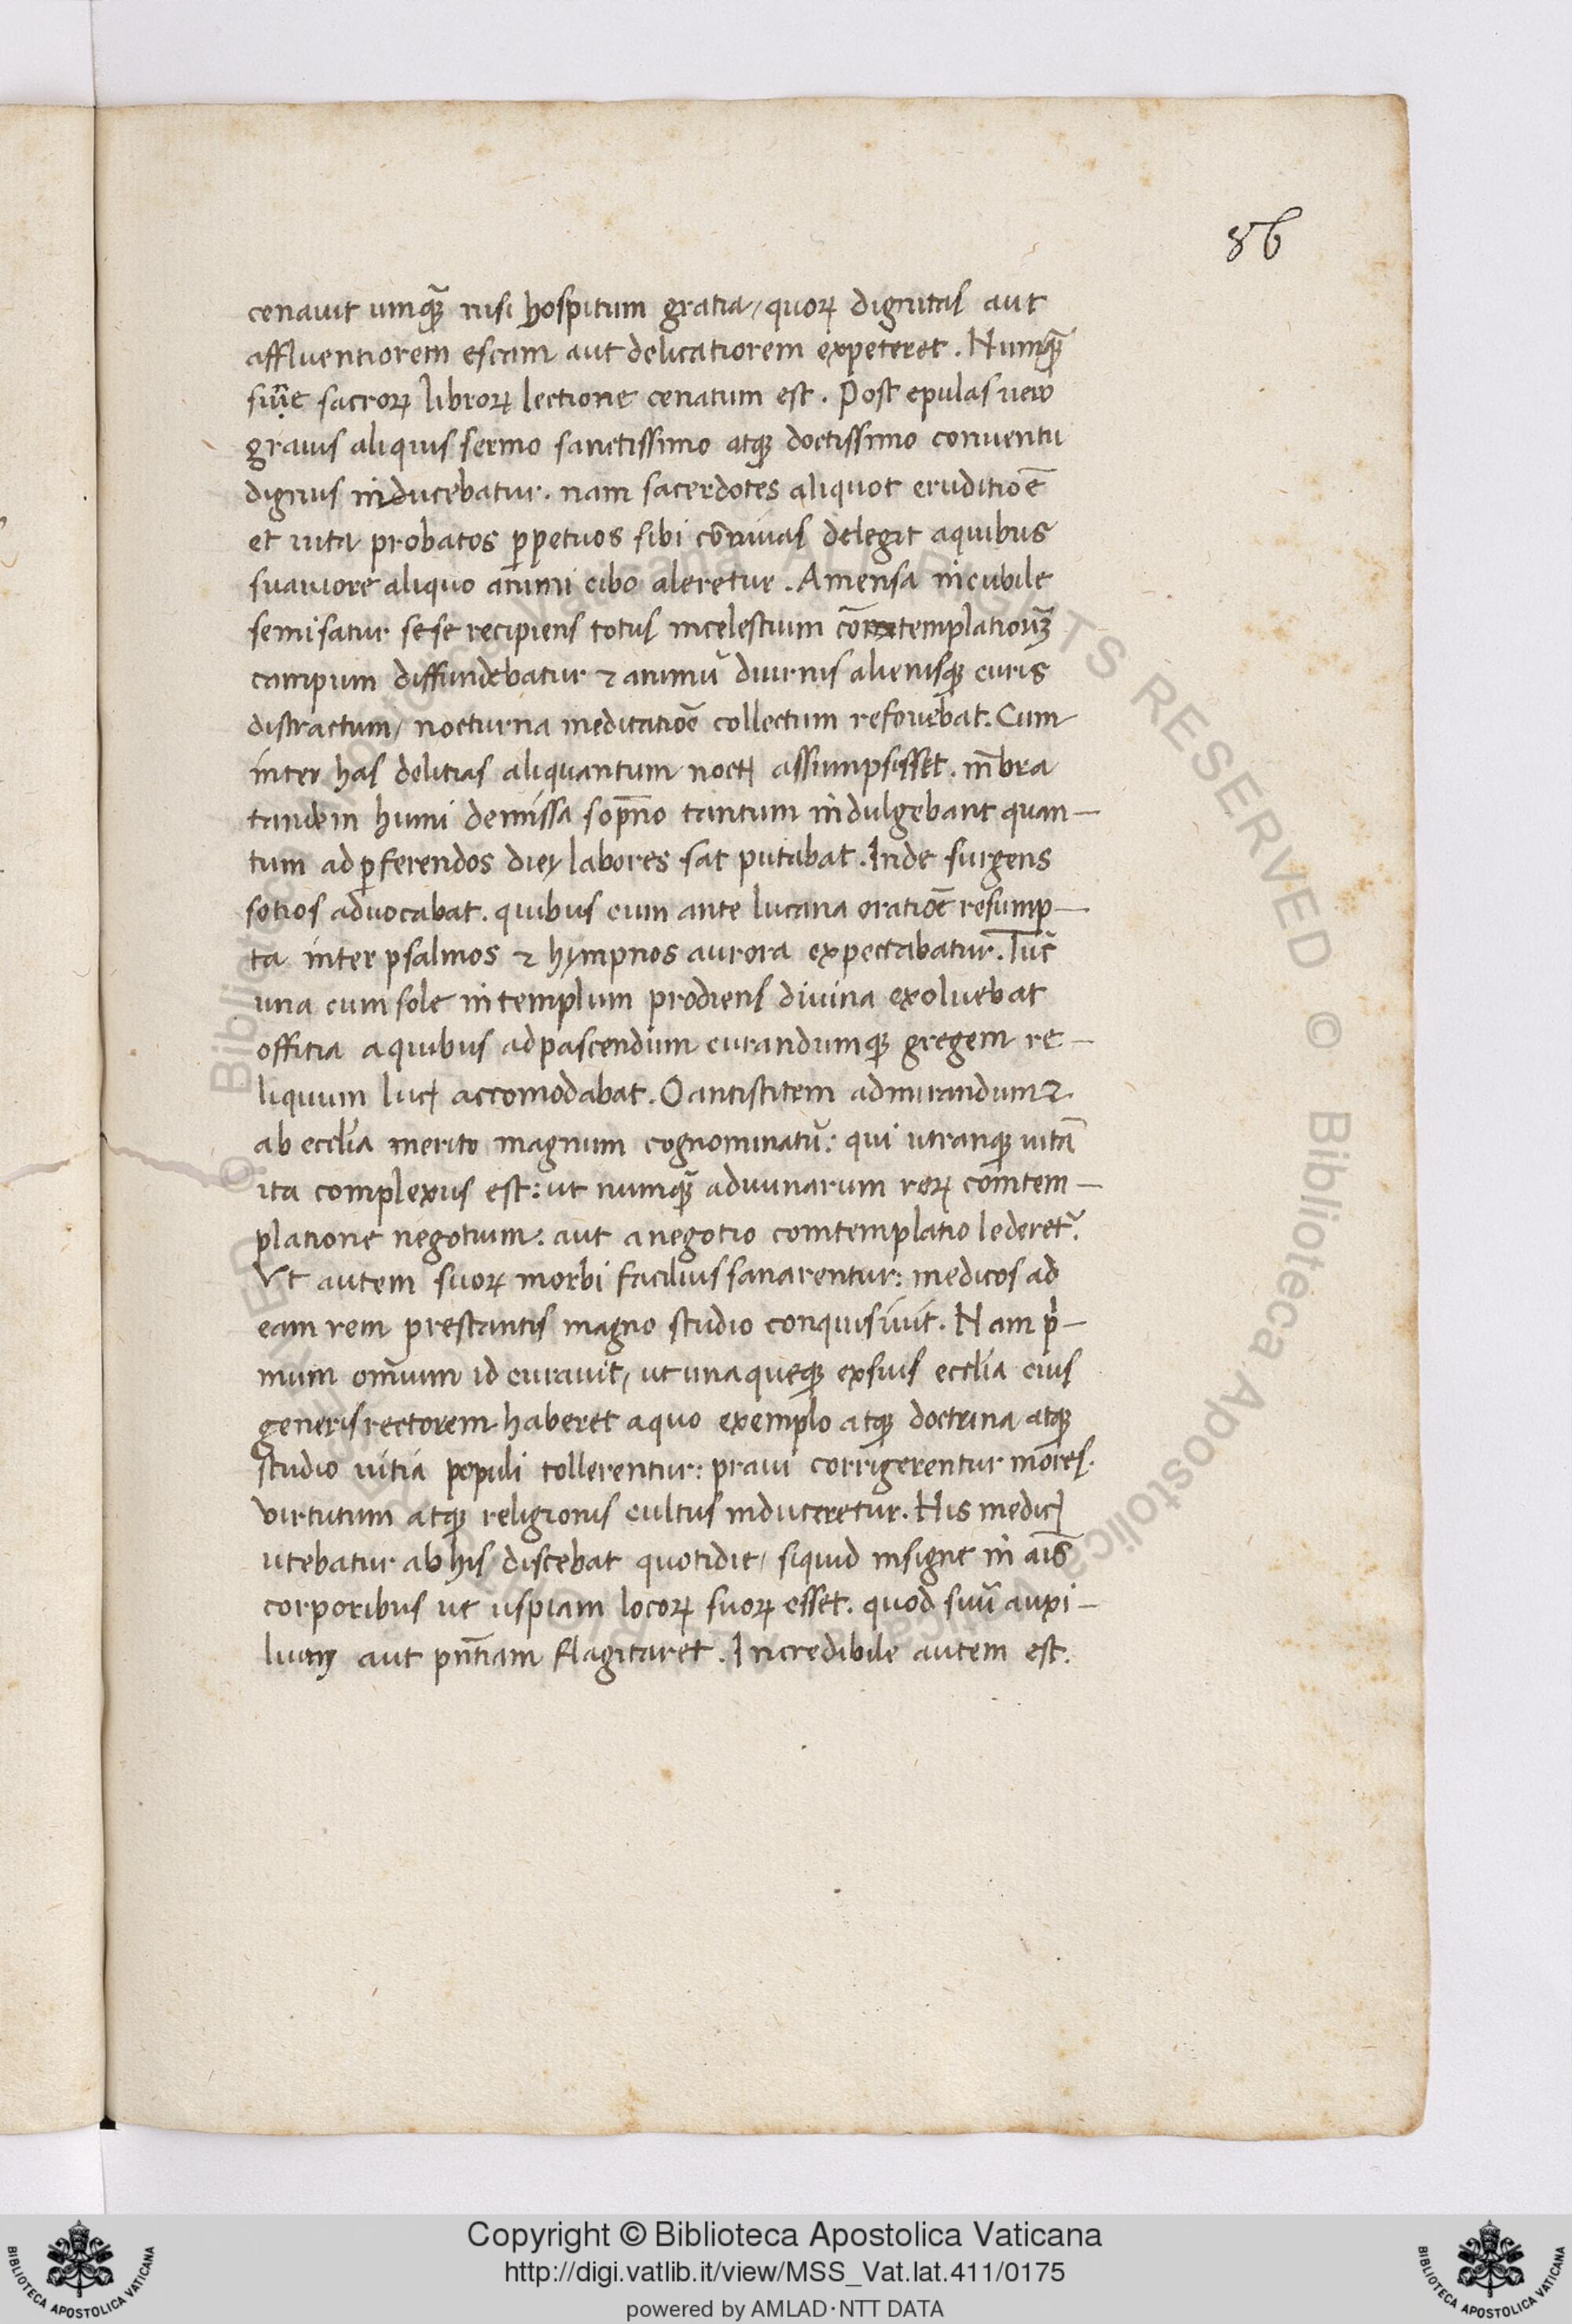 86
cenauit umq̃ nisi hospitum gratia, quoꝝ dignitas aut
affluentiorem escam aut delicatiorem expeteret. Numq̃
siũe sacroꝝ libroꝝ lectione cenatum est. Post epulas uero
grauis aliquis sermo sanctissimo atqꝫ doctissimo conuentu
dignus inducebatur. nam sacerdotes aliquot eruditiõe
et uita probatos ꝑpetuos sibi cõnuiuas delegit aquibus
suauiore aliquo animi cibo aleretur. Amensa incubile
semisatur sese recipiens totus incelestium cõtemplationũ
campum diffundebatur ⁊ animũ diurnis alienisqꝫ curis
distractum, nocturna meditatiõe collectum refouebat. Cum
inter has delitias aliquantum noctꝭ assumpsisset. mẽbra
tandem humi demissa sopño tantum indulgebant quan-
tum ad ꝑferendos diei labores sat putabat. Inde surgens
sotios aduocabat. quibus cum ante lucana oratiõe resump-
ta inter psalmos ⁊ hympnos aurora expectabatur. Tũc
una cum sole intemplum prodiens diuina exoluebat
offitia aquibus adpascendum curandumqꝫ gregem re-
liquum lucꝭ accomodabat. O antistitem admirandum ⁊
ab eccl̃ia merito magnum cognominatũ: qui utranqꝫ uitã
ita complexus est: ut numq̃ adiuinarum reꝝ comtem-
platione negotium: aut anegotio comtemplatio lederet᷑.
Vt autem suoꝝ morbi facilius sanarentur: medicos ad
eam rem prestantis magno studio conquisiuit. Nam pͥ-
mum om̃ium id curauit, ut unaqueqꝫ exsuis eccl̃ia eius
generis rectorem haberet aquo exemplo atqꝫ doctrina atqꝫ
studio uitia populi tollerentur: praui corrigerentur mores.
virtutum atqꝫ religionis cultus induceretur. His medicꝭ
utebatur ab his discebat quotidie, siquid insigne in aĩs
corporibus ut uspiam locoꝝ suoꝝ esset. quod suũ auxi-
lium aut pñtiam flagitaret. Incredibile autem est.
Copyright © Biblioteca Apostolica Vaticana
http://digi.vatlib.it/view/MSS_Vat.lat.411/0175
powered by AMLAD·NTT DATA